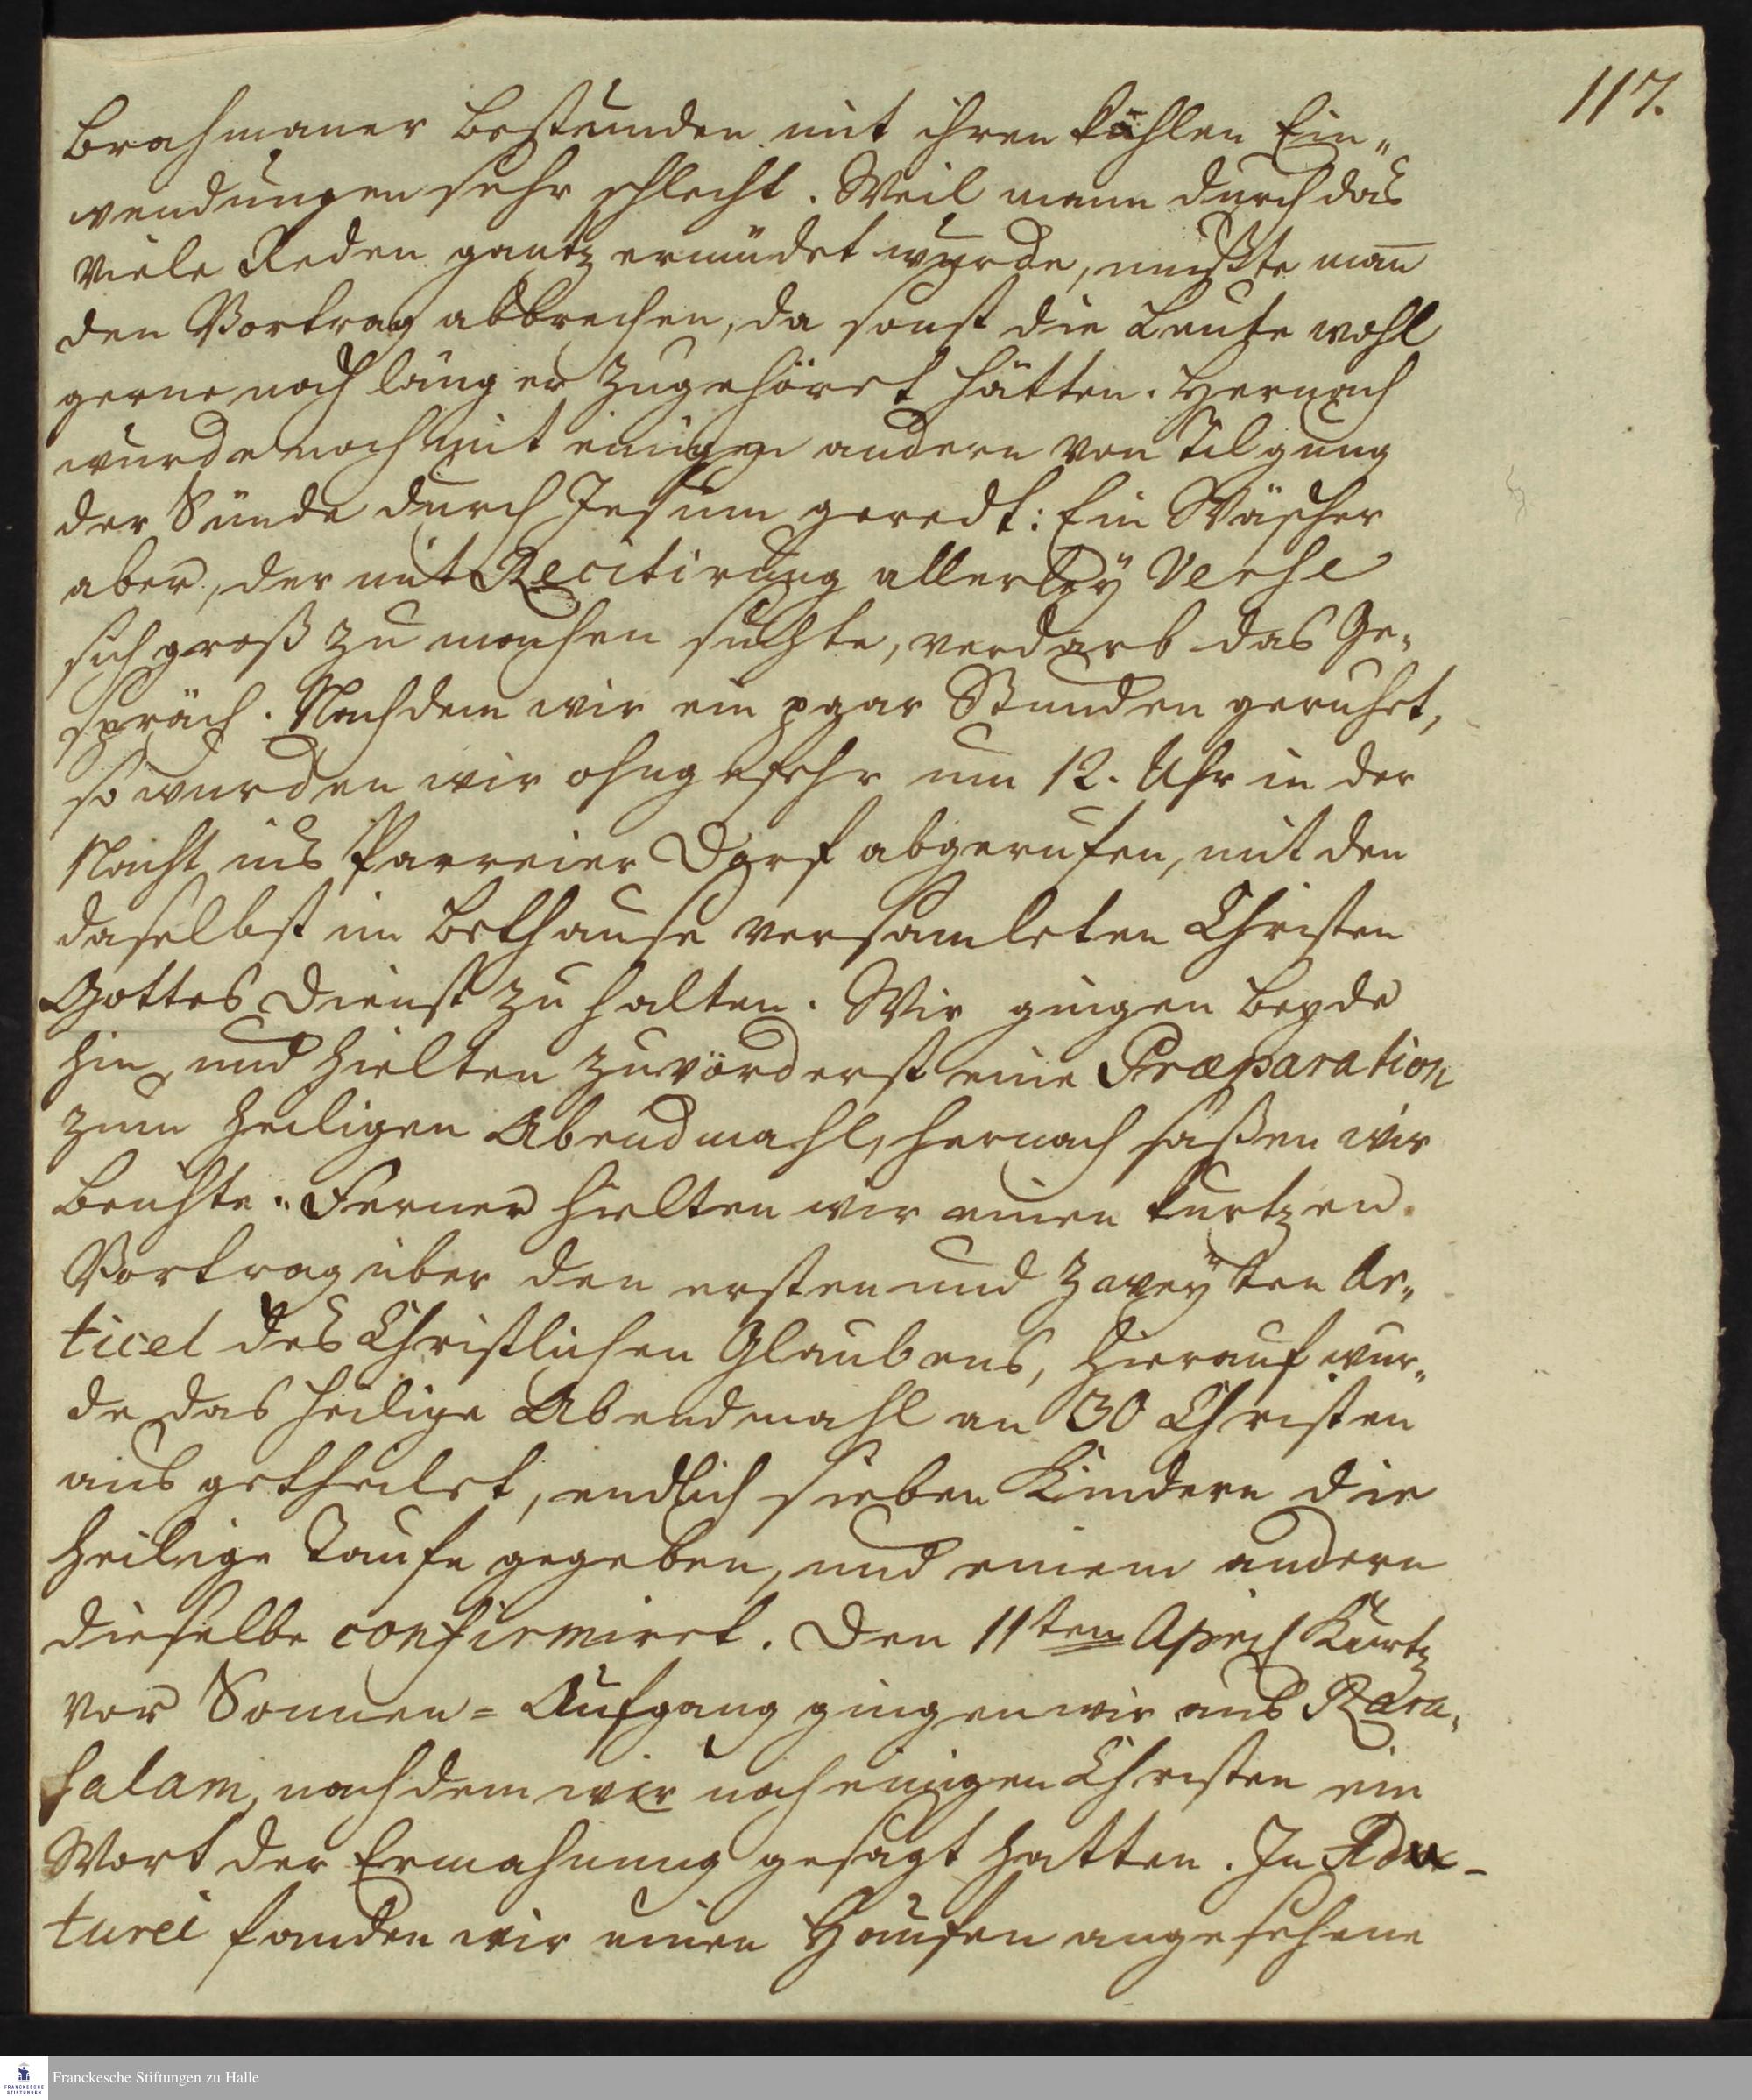 117.
Brahmaner bestunden mit ihren kahlen Ein„
wendungen sehr schlecht. Weil mann durch das
viele Reden gantz ermüdet wurde, mußte man̅
den Vortrag abbrechen, da sonst die Leute wohl
gerne noch länger zugehöret hätten. Hernach
wurde noch mit einigen andern von Tilgung
der Sünde durch Jesum geredt: Ein Wäscher
aber, der mit Recitirung allerley Verse
sich groß zu machen suchte, verdarb das Ge„
spräch. Nachdem wir ein paar Stunden geruhet,
so wurden wir ohngefehr um 12. Uhr in der
Nacht ins Parreier Dorf abgerufen, mit den
daselbst im Bethause versamleten Christen
Gottes Dienst zu halten. Wir gingen beyde
hin, und hielten zuvörderst eine Præparation
zum heiligen Abendmahl, hernach saßen wir
Beichte. Ferner hielten wir einen kurtzen
Vortrag über den ersten und zweyten Ar„
ticel des Christlichen Glaubens, hierauf wur„
de das heilige Abendmahl an 30 Christen
ausgetheilet, endlich sieben Kindern die
heilige Taufe gegeben, und einem andern
dieselbe confirmiret. Den 11ten April Kurtz
vor Sonnen=Aufgang gingen wir aus Rasa„
salam, nachdem wir noch einigen Christen ein
Wort der Ermahnung gesagt hatten. In Adu-
turei fanden wir einen Haufen angesehene
Franckesche Stiftungen zu Halle
FRANCKESCHE
STIFTUNGEN